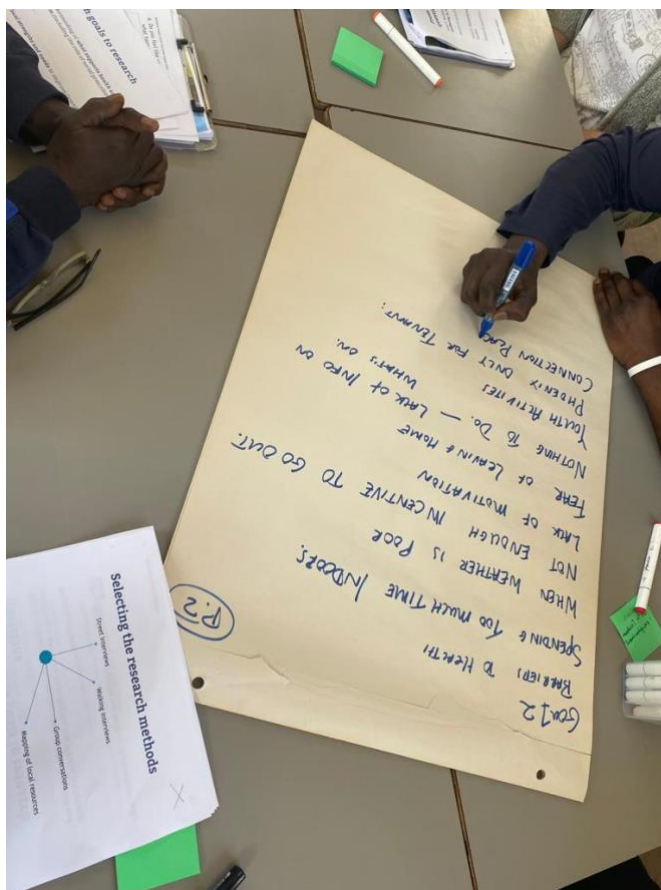 P.2
Goal 2
BARRIERS TO HEALTH
SPENDING TOO MUCH TIME INDOORS.
WHEN WEATHER IS POOR
NOT ENOUGH INCENTIVE TO GO OUT.
LACK OF MOTIVATION
FEAR OF LEAVING HOME
NOTHING TO DO. — LACK OF INFO ON
WHAT'S ON.
YOUTH ACTIVITIES
PHOENIX ONLY FOR TENANT:
CONNECTION PLAC
Selecting the research methods
Street interviews
Walking interviews
Group conversations
Mapping of local resources
goals to research